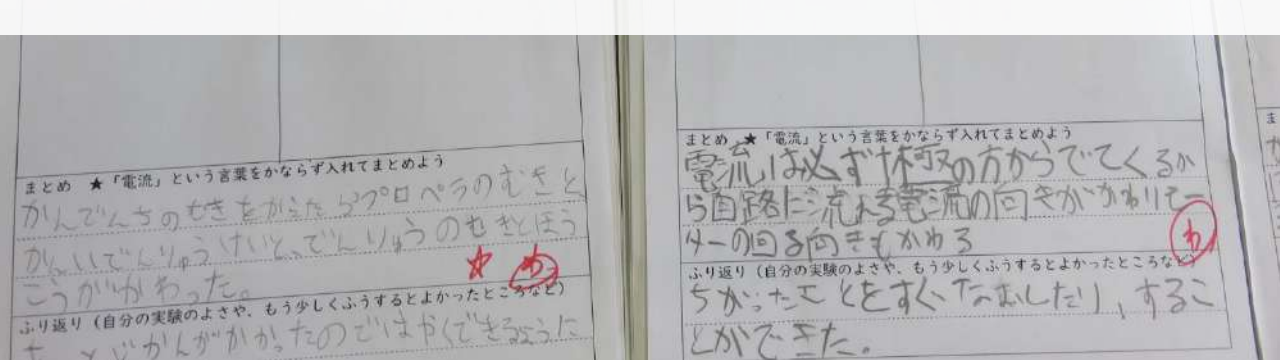 まとめ ★「電流」という言葉をかならず入れてまとめよう
かんでんちのむきをかえたらプロペラのむきと
かんいでんりゅうけいと、でんりゅうのむきとほう
こうがかわった。
わ
ふり返り（自分の実験のよさや、もう少しくふうするとよかったところなど）
じかんがかかったのではやくできるように
まとめ ★「電流」という言葉をかならず入れてまとめよう
電流は必ず+極の方からでてくるか
ら回路に流れる電流の向きがかわりモー
ターの回る向きもかわる
わ
ふり返り（自分の実験のよさや、もう少しくふうするとよかったところなど）
ちがったことをすぐなおしたり、するこ
とができた。